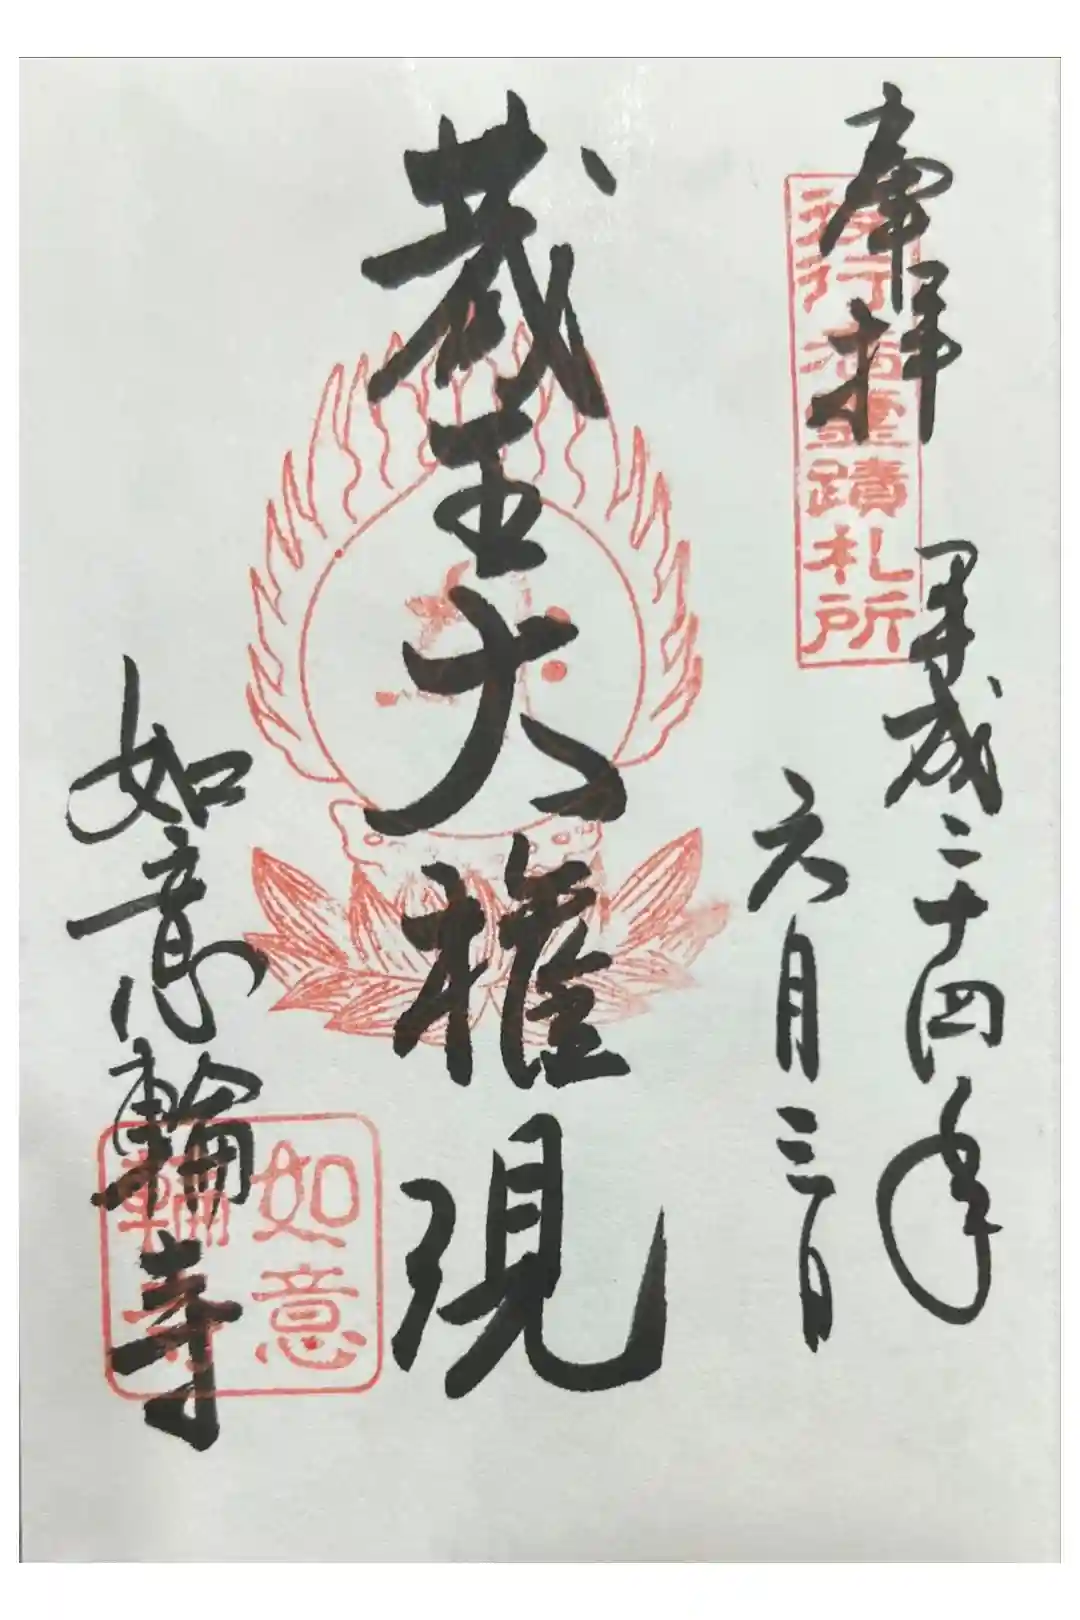 奉拝
役行者霊蹟札所
平成二十四年
六月三日
蔵王大権現
如意輪寺
如意
輪寺